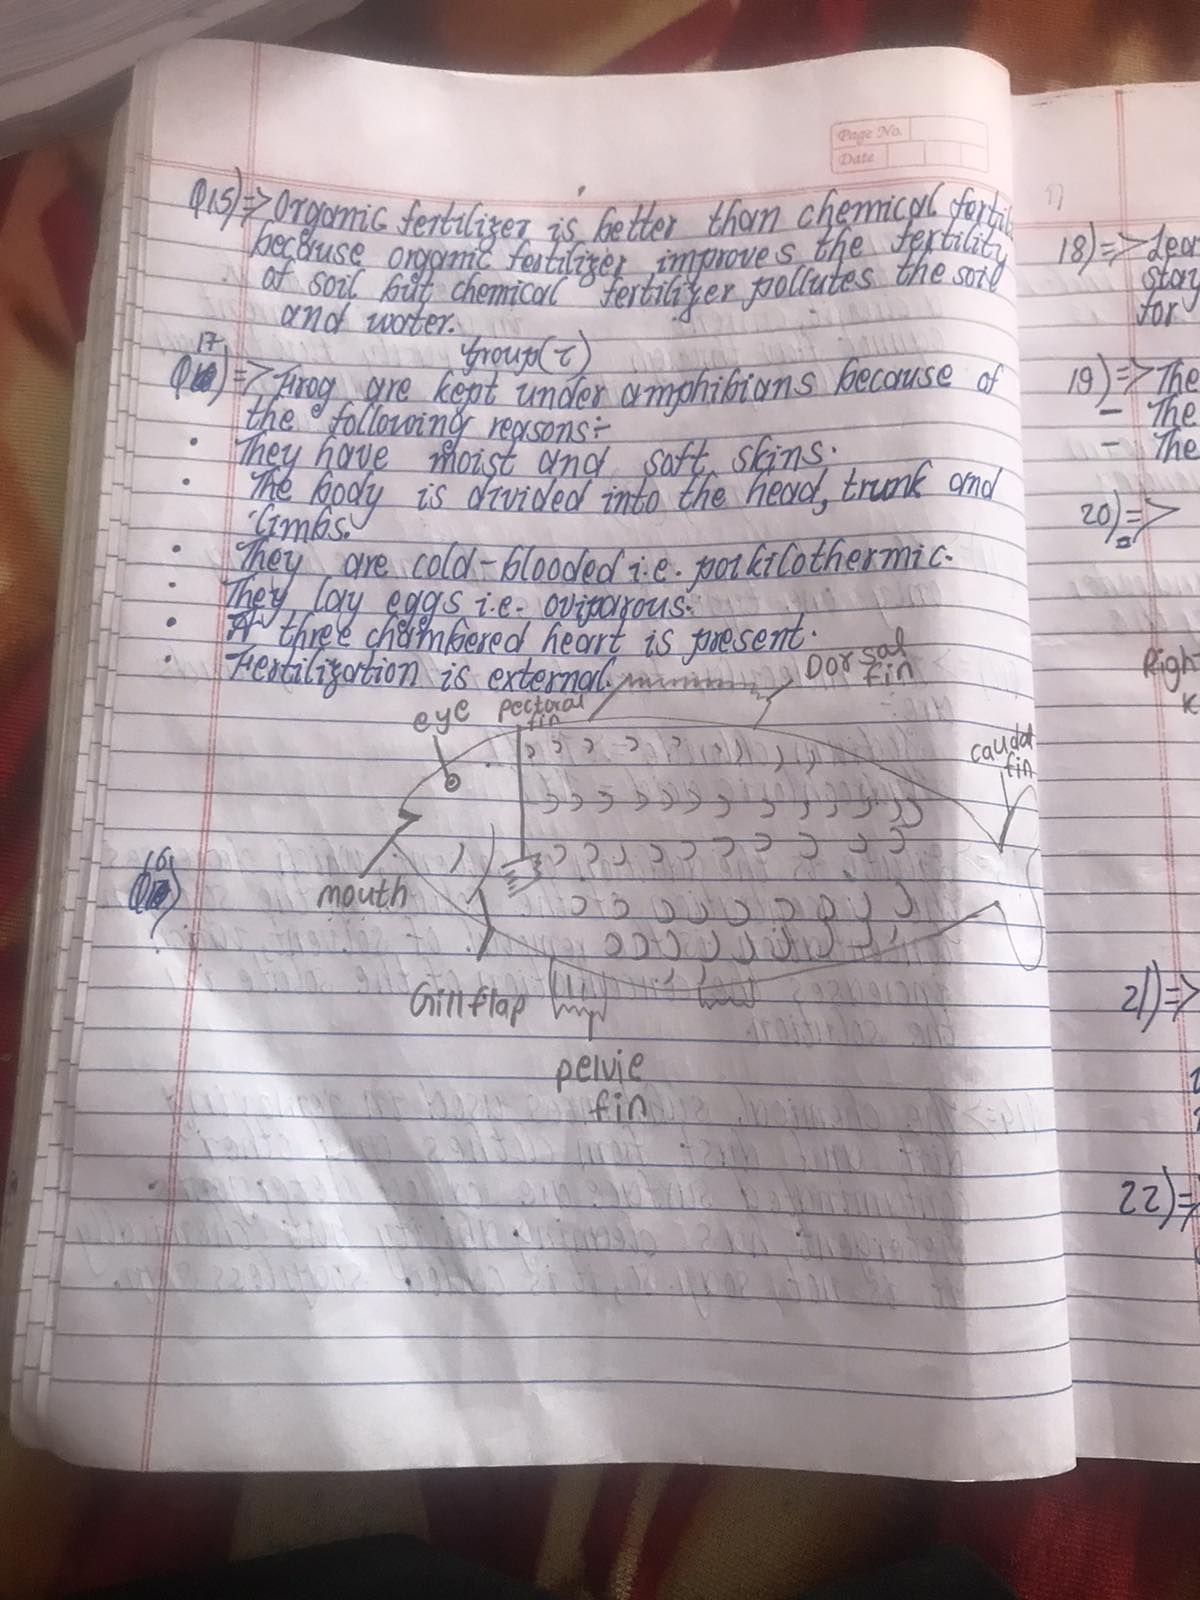 Page No.
Date
Q15)=> Organic fertilizer is better than chemical
because organic fertilizer improves the fertility
of soil but chemical fertilizer pollutes the soil
and water.
Group(C)
Q17)=> Frog are kept under amphibians because of
the following reasons:-
• They have moist and soft skins.
• The body is divided into the head, trunk and
limbs.
• They are cold-blooded i.e. poikilothermic.
• They lay eggs i.e. oviparous.
• A three chambered heart is present.
• Fertilization is external.
Dorsal
fin
eye
pectoral
fin
caudal
fin
Q16)
mouth
Gill flap
pelvie
fin
18)=>
for
19)=> The
- The
- The
20)=>
Right
21)=>
22)=>